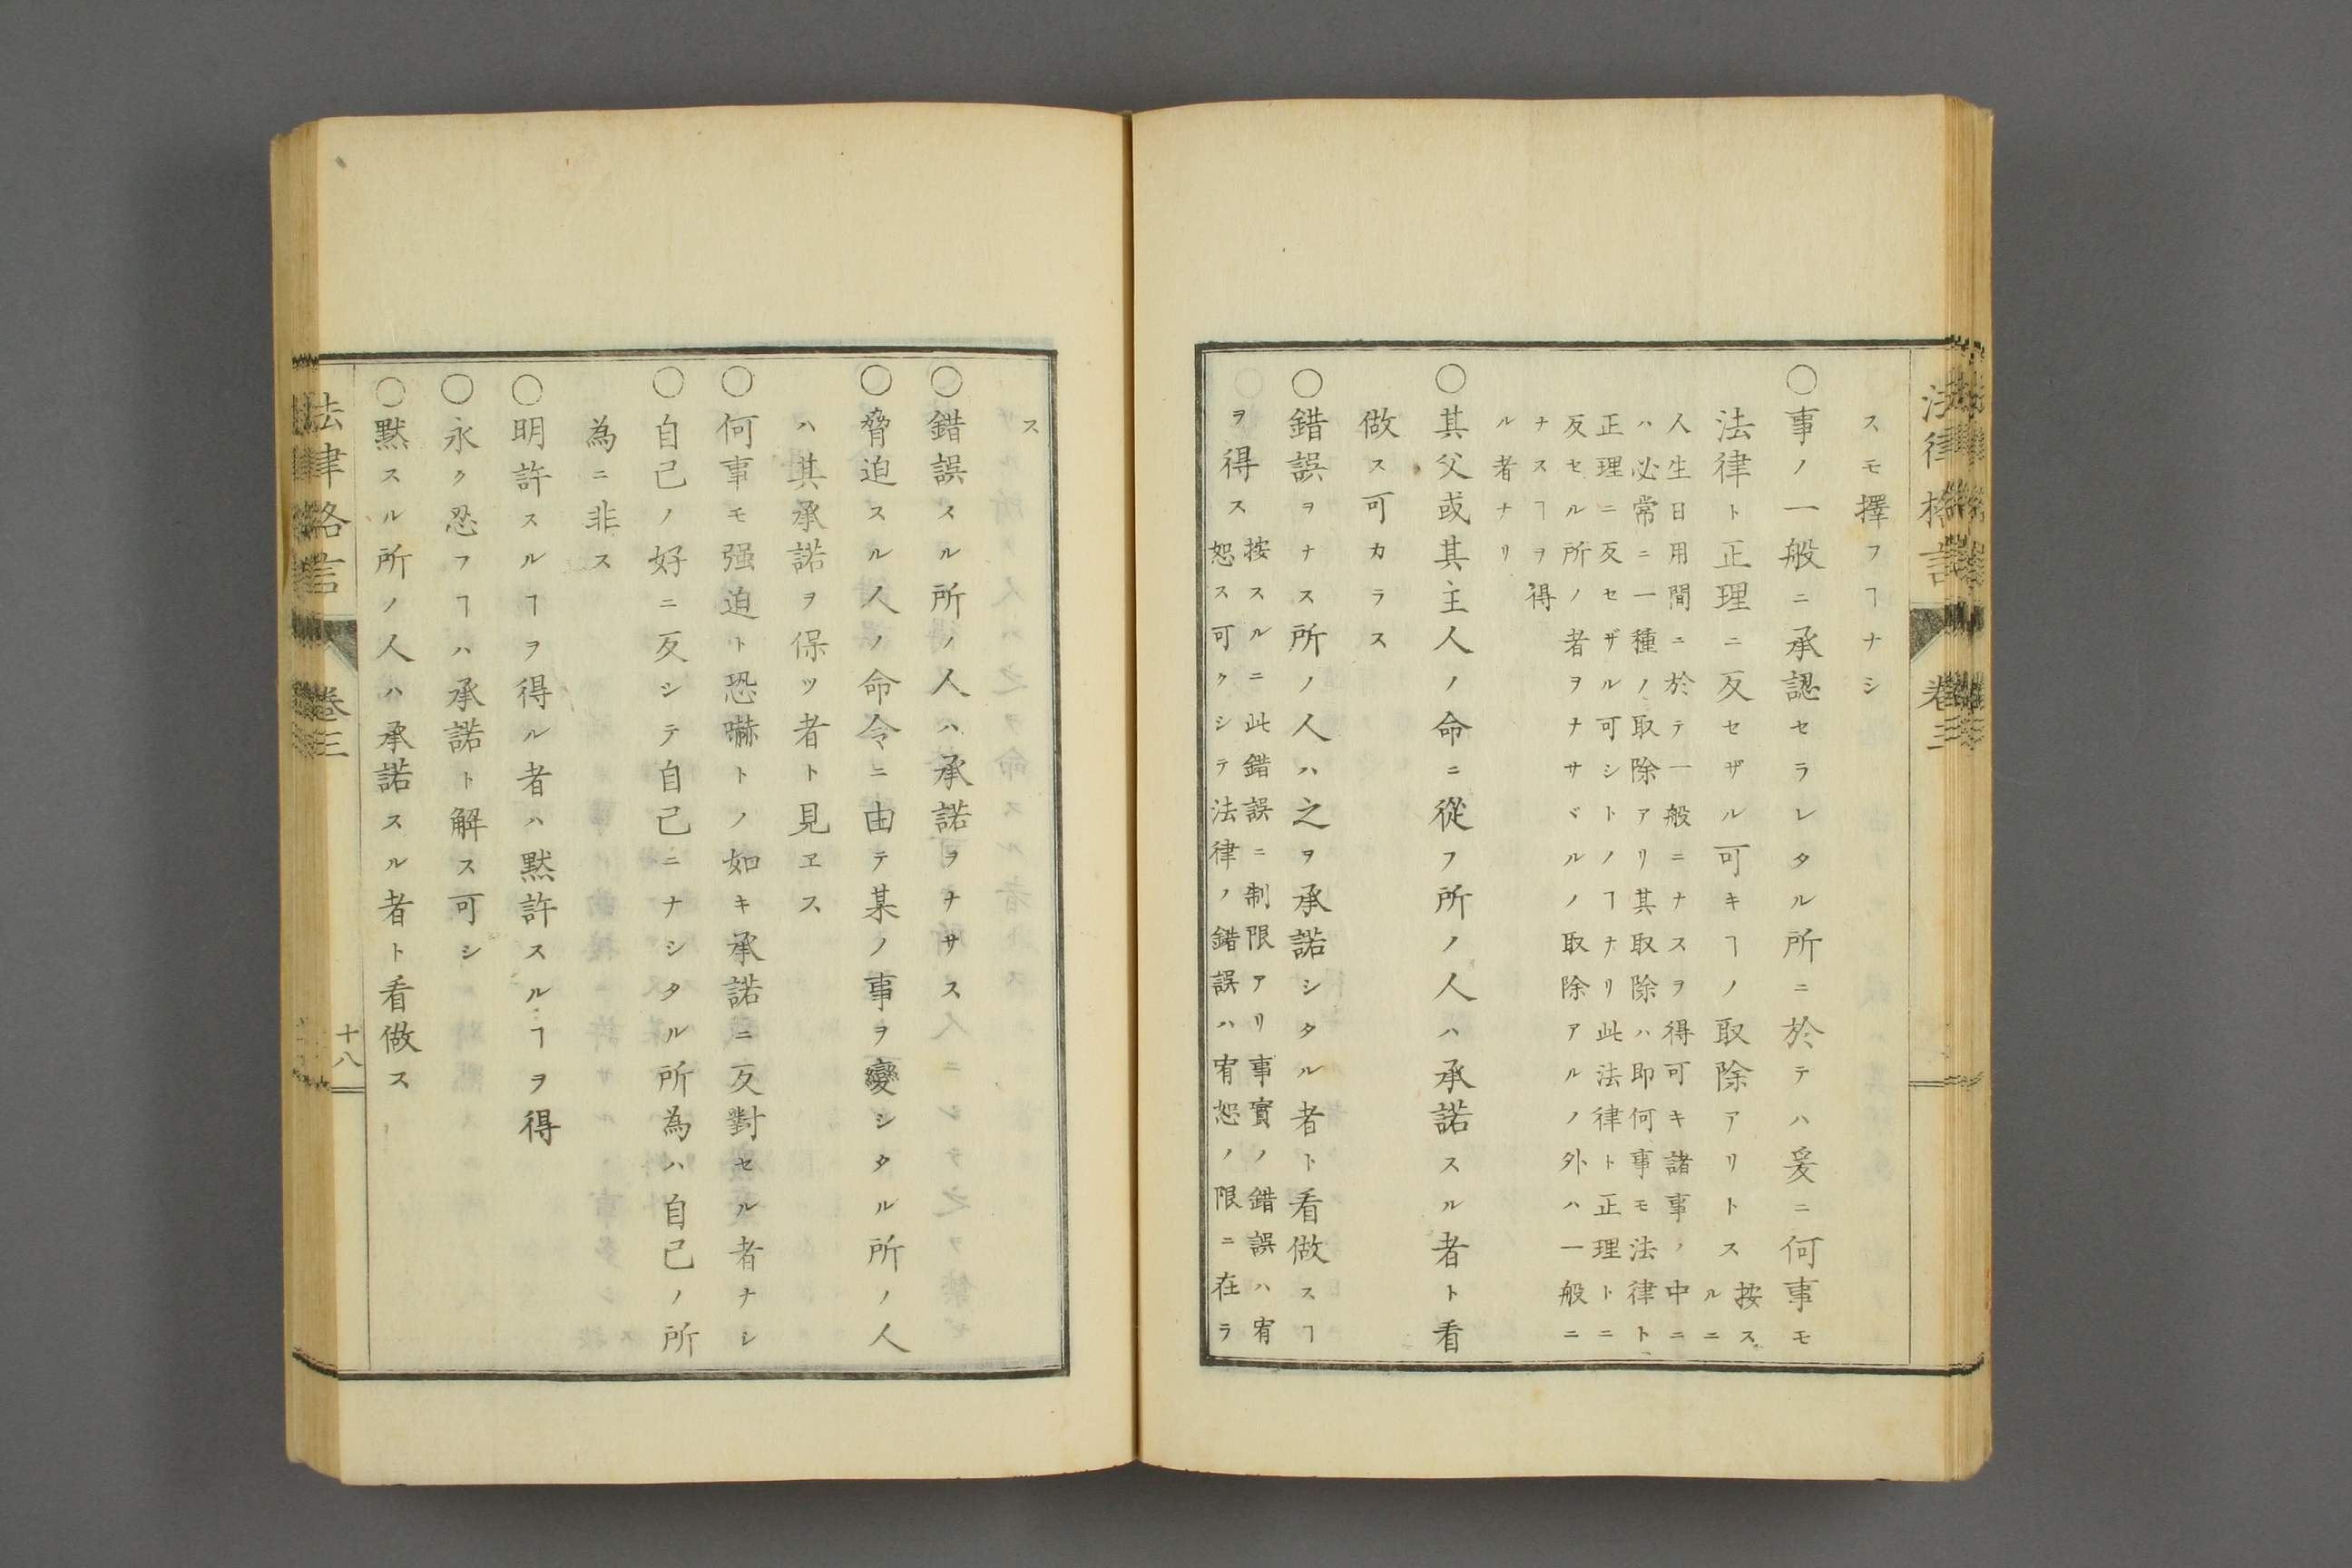 法律格言 卷三
スモ擇フヿナシ
○事ノ一般ニ承認セラレタル所ニ於テハ爰ニ何事モ
法律ト正理ニ反セザル可キヿノ取除アリトス按ス
ルニ
人生日用間ニ於テ一般ニナスヲ得可キ諸事ノ中ニ
ハ必常ニ一種ノ取除アリ其取除ハ即何事モ法律ト
正理ニ反セザル可シトノヿナリ此法律ト正理トニ
反セル所ノ者ヲナサヾルノ取除アルノ外ハ一般ニ
ナスヿヲ得
ル者ナリ
○其父或其主人ノ命ニ從フ所ノ人ハ承諾スル者ト看
做ス可カラス
○錯誤ヲナス所ノ人ハ之ヲ承諾シタル者ト看做スヿ
ヲ得ス按スルニ此錯誤ニ制限アリ事實ノ錯誤ハ宥
恕ス可クシテ法律ノ錯誤ハ宥恕ノ限ニ在ラ
ス
○錯誤スル所ノ人ハ承諾ヲナサス
○脅迫スル人ノ命令ニ由テ某ノ事ヲ變シタル所ノ人
ハ其承諾ヲ保ツ者ト見ヱス
○何事モ强迫ト恐嚇トノ如キ承諾ニ反對セル者ナシ
○自己ノ好ニ反シテ自己ニナシタル所為ハ自己ノ所
為ニ非ス
○明許スルヿヲ得ル者ハ黙許スルヿヲ得
○永ク忍フヿハ承諾ト解ス可シ
○黙スル所ノ人ハ承諾スル者ト看做ス
法律格言 卷三 十八